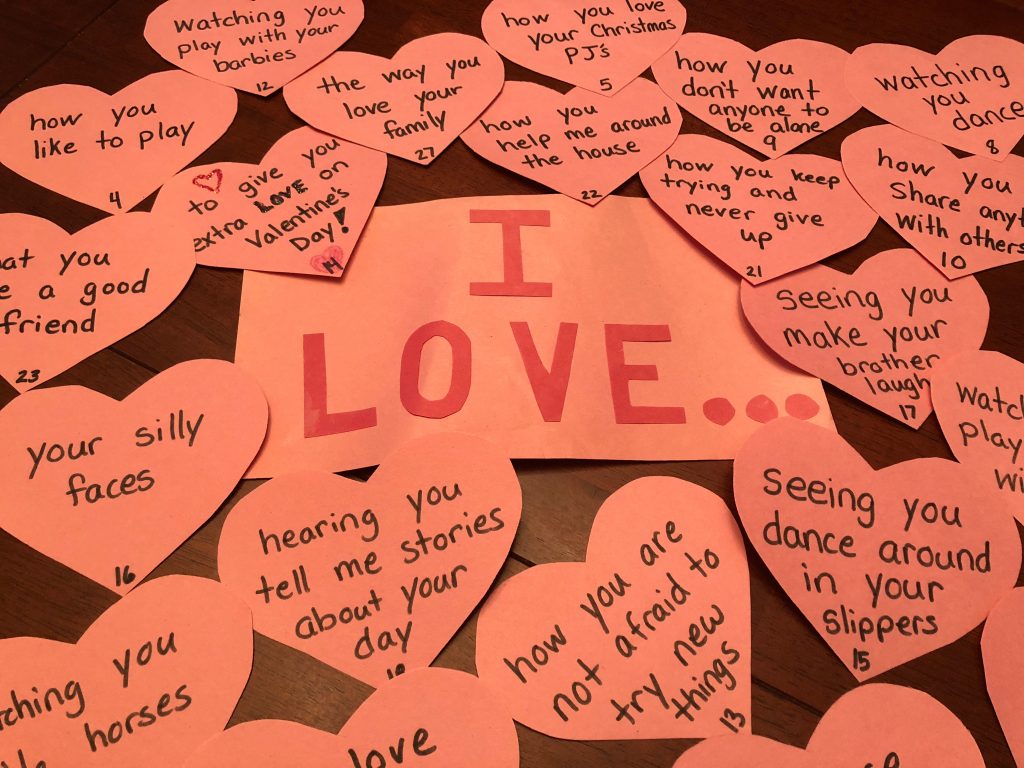 watching you
play with your
barbies
12
how you love
your Christmas
PJ's
5
the way you
love your
family
27
how you
don't want
anyone to
be alone
9
watching
you
dance
8
how you
like to play
4
how you
help me around
the house
22
to give you
extra LOVE on
Valentine's
Day!
14
how you keep
trying and
never give
up
21
how you
Share
with others
10
I
LOVE...
you
a good
friend
23
seeing you
make your
brother
laugh
17
your silly
faces
16
hearing you
tell me stories
about your
day
how you are
not afraid to
try new
things
13
Seeing you
dance around
in your
slippers
15
play
you
horses
love